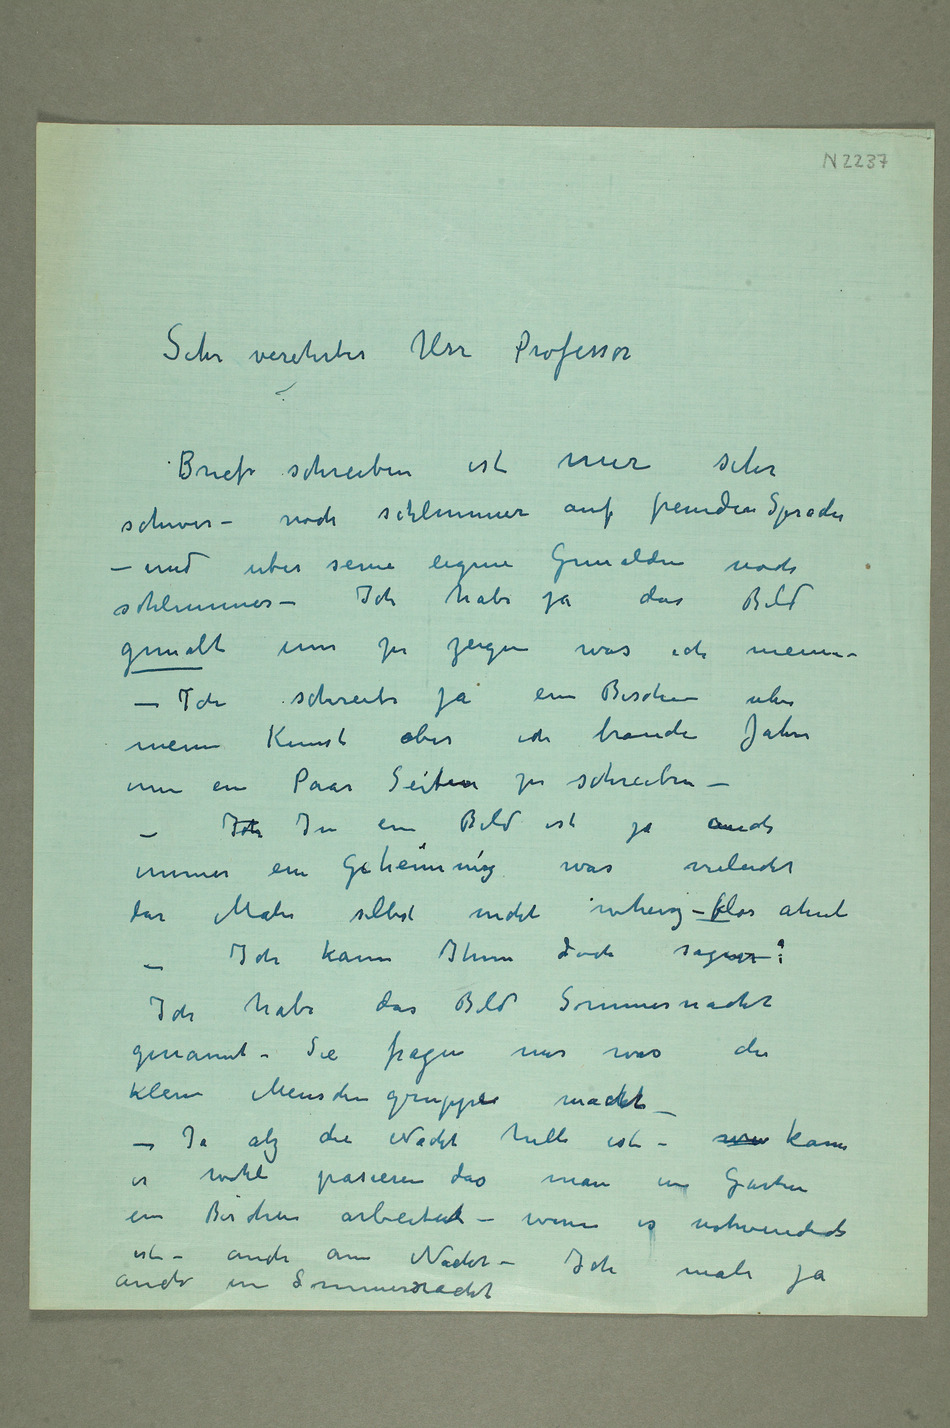 N 2237
Sehr verehrter Herr Professor
Briefe schreiben ist mir sehr
schwer – noch schlimmer auf fremden Sprache
– und uber seine eigne Gemälden noch
schlimmer – Ich habe ja das Bild
gemalt um zu zeigen was ich meine –
– Ich schreibe ja ein Bischen uber
meine Kunst aber ich brauche Jahre
um ein Paar Seiten zu schreiben –
– Ich In ein Bild ist ja auch
immer ein Geheimniß was vieleicht
der Maler selbst nicht – klar ahnt
– Ich kann Ihnen doch sagen:
Ich habe das Bild Sommernacht
genannt – Sie fragen mir was die
kleine Menschengruppe macht –
– Ja alz die Nacht helle ist – kann
es wohl pasieren das man im Garten
ein Bischen arbeitet – wenn es notwendich
ist – auch am Nacht – Ich male ja
auch in Sommernacht